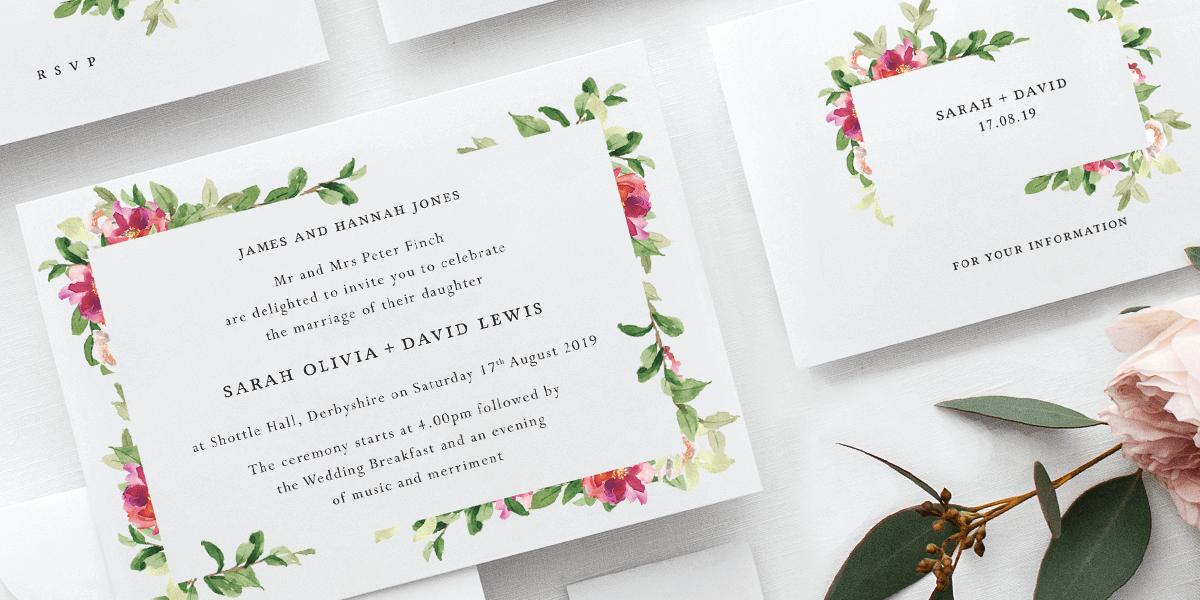 RSVP
JAMES AND HANNAH JONES
Mr and Mrs Peter Finch
are delighted to invite you to celebrate
the marriage of their daughter
SARAH OLIVIA + DAVID LEWIS
at Shottle Hall, Derbyshire on Saturday 17th August 2019
The ceremony starts at 4.00pm followed by
the Wedding Breakfast and an evening
of music and merriment
SARAH + DAVID
17.08.19
FOR YOUR INFORMATION